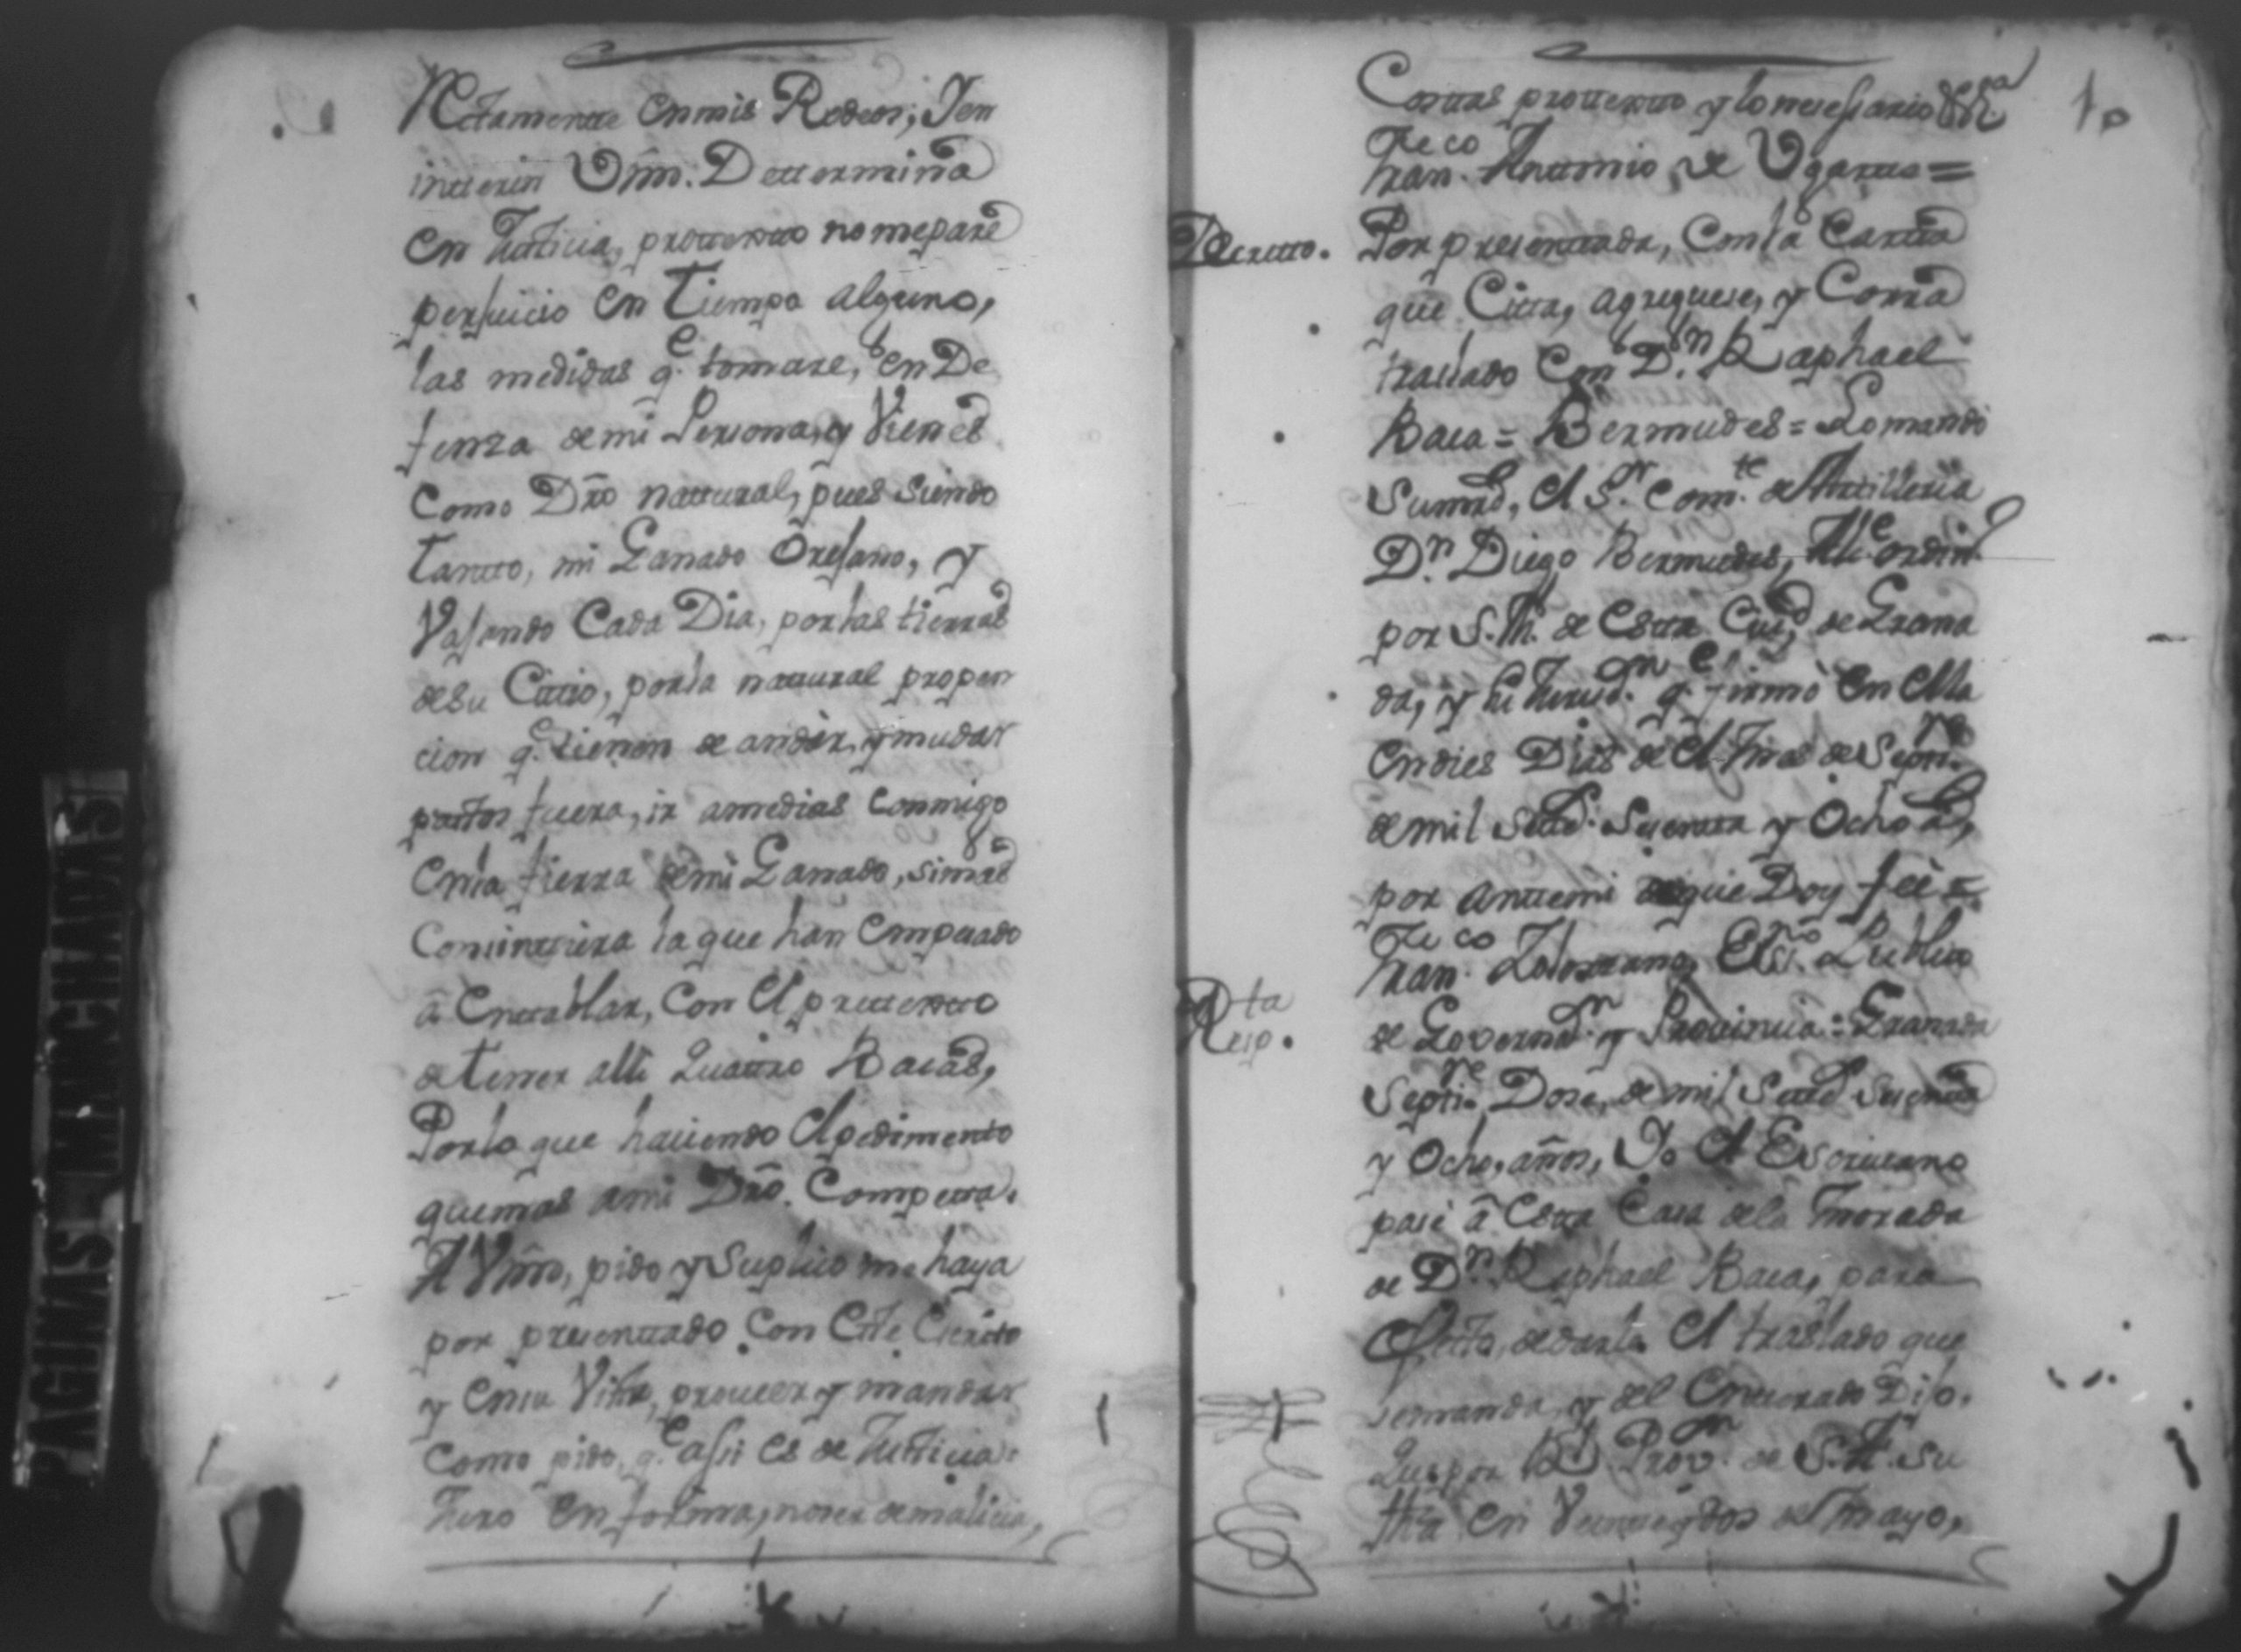 Rectamente en mis Rodeos; Yen
intterin Vmn. Dettermina
en Justicia, prottextto no mepare
perjuicio en Tiempo alguno,
las medidas q.e tomare, en De
fenza de mi Persona, y Vienes
Como Dr̃o nattural, pues siendo
tantto, mi Ganado Orejano, y
Vajando Cada Dia, por las tierras
desu Cittio, por la nattural propen
cion q.e tienen de andar, y mudar
pastos fuera, ir amedias Conmigo
Enla fierra de mi Ganado, simas
la que han Empesado
â Enttablar, Con El prettextto
de tener alli Quattro Bacas,
Porlo que haciendo El pedimento
quemas ami Dr̃o. Competta.
A Vmn, pido y Suplico me haya
por presenttado Con Este Escrito
y Ensu Vista, proveer y mandar
Como pido, q.e assi es de Justicia:
Juro En forma, noser de malicia,
10
Costtas prottextto y lo nesessario &.a
Fran.co Anttonio de Ugartte =
Decretto. Por presenttada, Con la Cartta
que Citta, agreguese, y Corra
traslado Con D.n Raphael
Baca = Bermudes = Lo mando
Sumrd, El S.r Com.te de Artilleria
D.n Diego Bermudes, Alc.e ordin.o
por S.M. de Estta Ciud de Grana
da, y su Jurisd.on q.e firmò En Ella
Endies Dias de El mes de Septi.re
demil Settes. Sesentta y Ocho as,
por anttemi de que Doy feè =
Fran.co Es.no Publico
de Governa.on y Provincia = Granada
Resp.ta Septi.re Dose, de mil Settes Sesentta
y Ocho, años, Yo El Escrivano
pasè â Estta Casa dela morada
de D.n Raphael Baca, para
Efecto, de darle El traslado que
semanda, y del Entterado Dijo.
Que por Rl. Prov.on de S.A. Su
fha En Veintte y dos de Mayo,
PAGINAS MANCHADAS